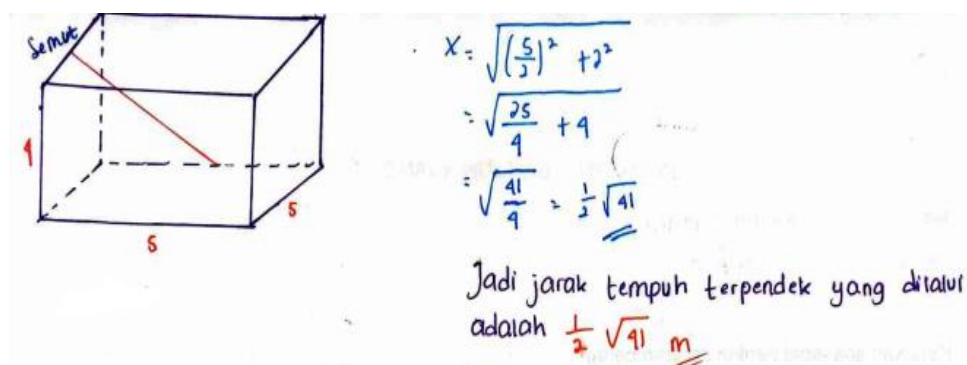 Semut
4
5
5
x = √((5/2)² + 2²)
= √(25/4 + 4)
= √(41/4) = 1/2 √41
Jadi jarak tempuh terpendek yang dilalui
adalah 1/2 √41 m